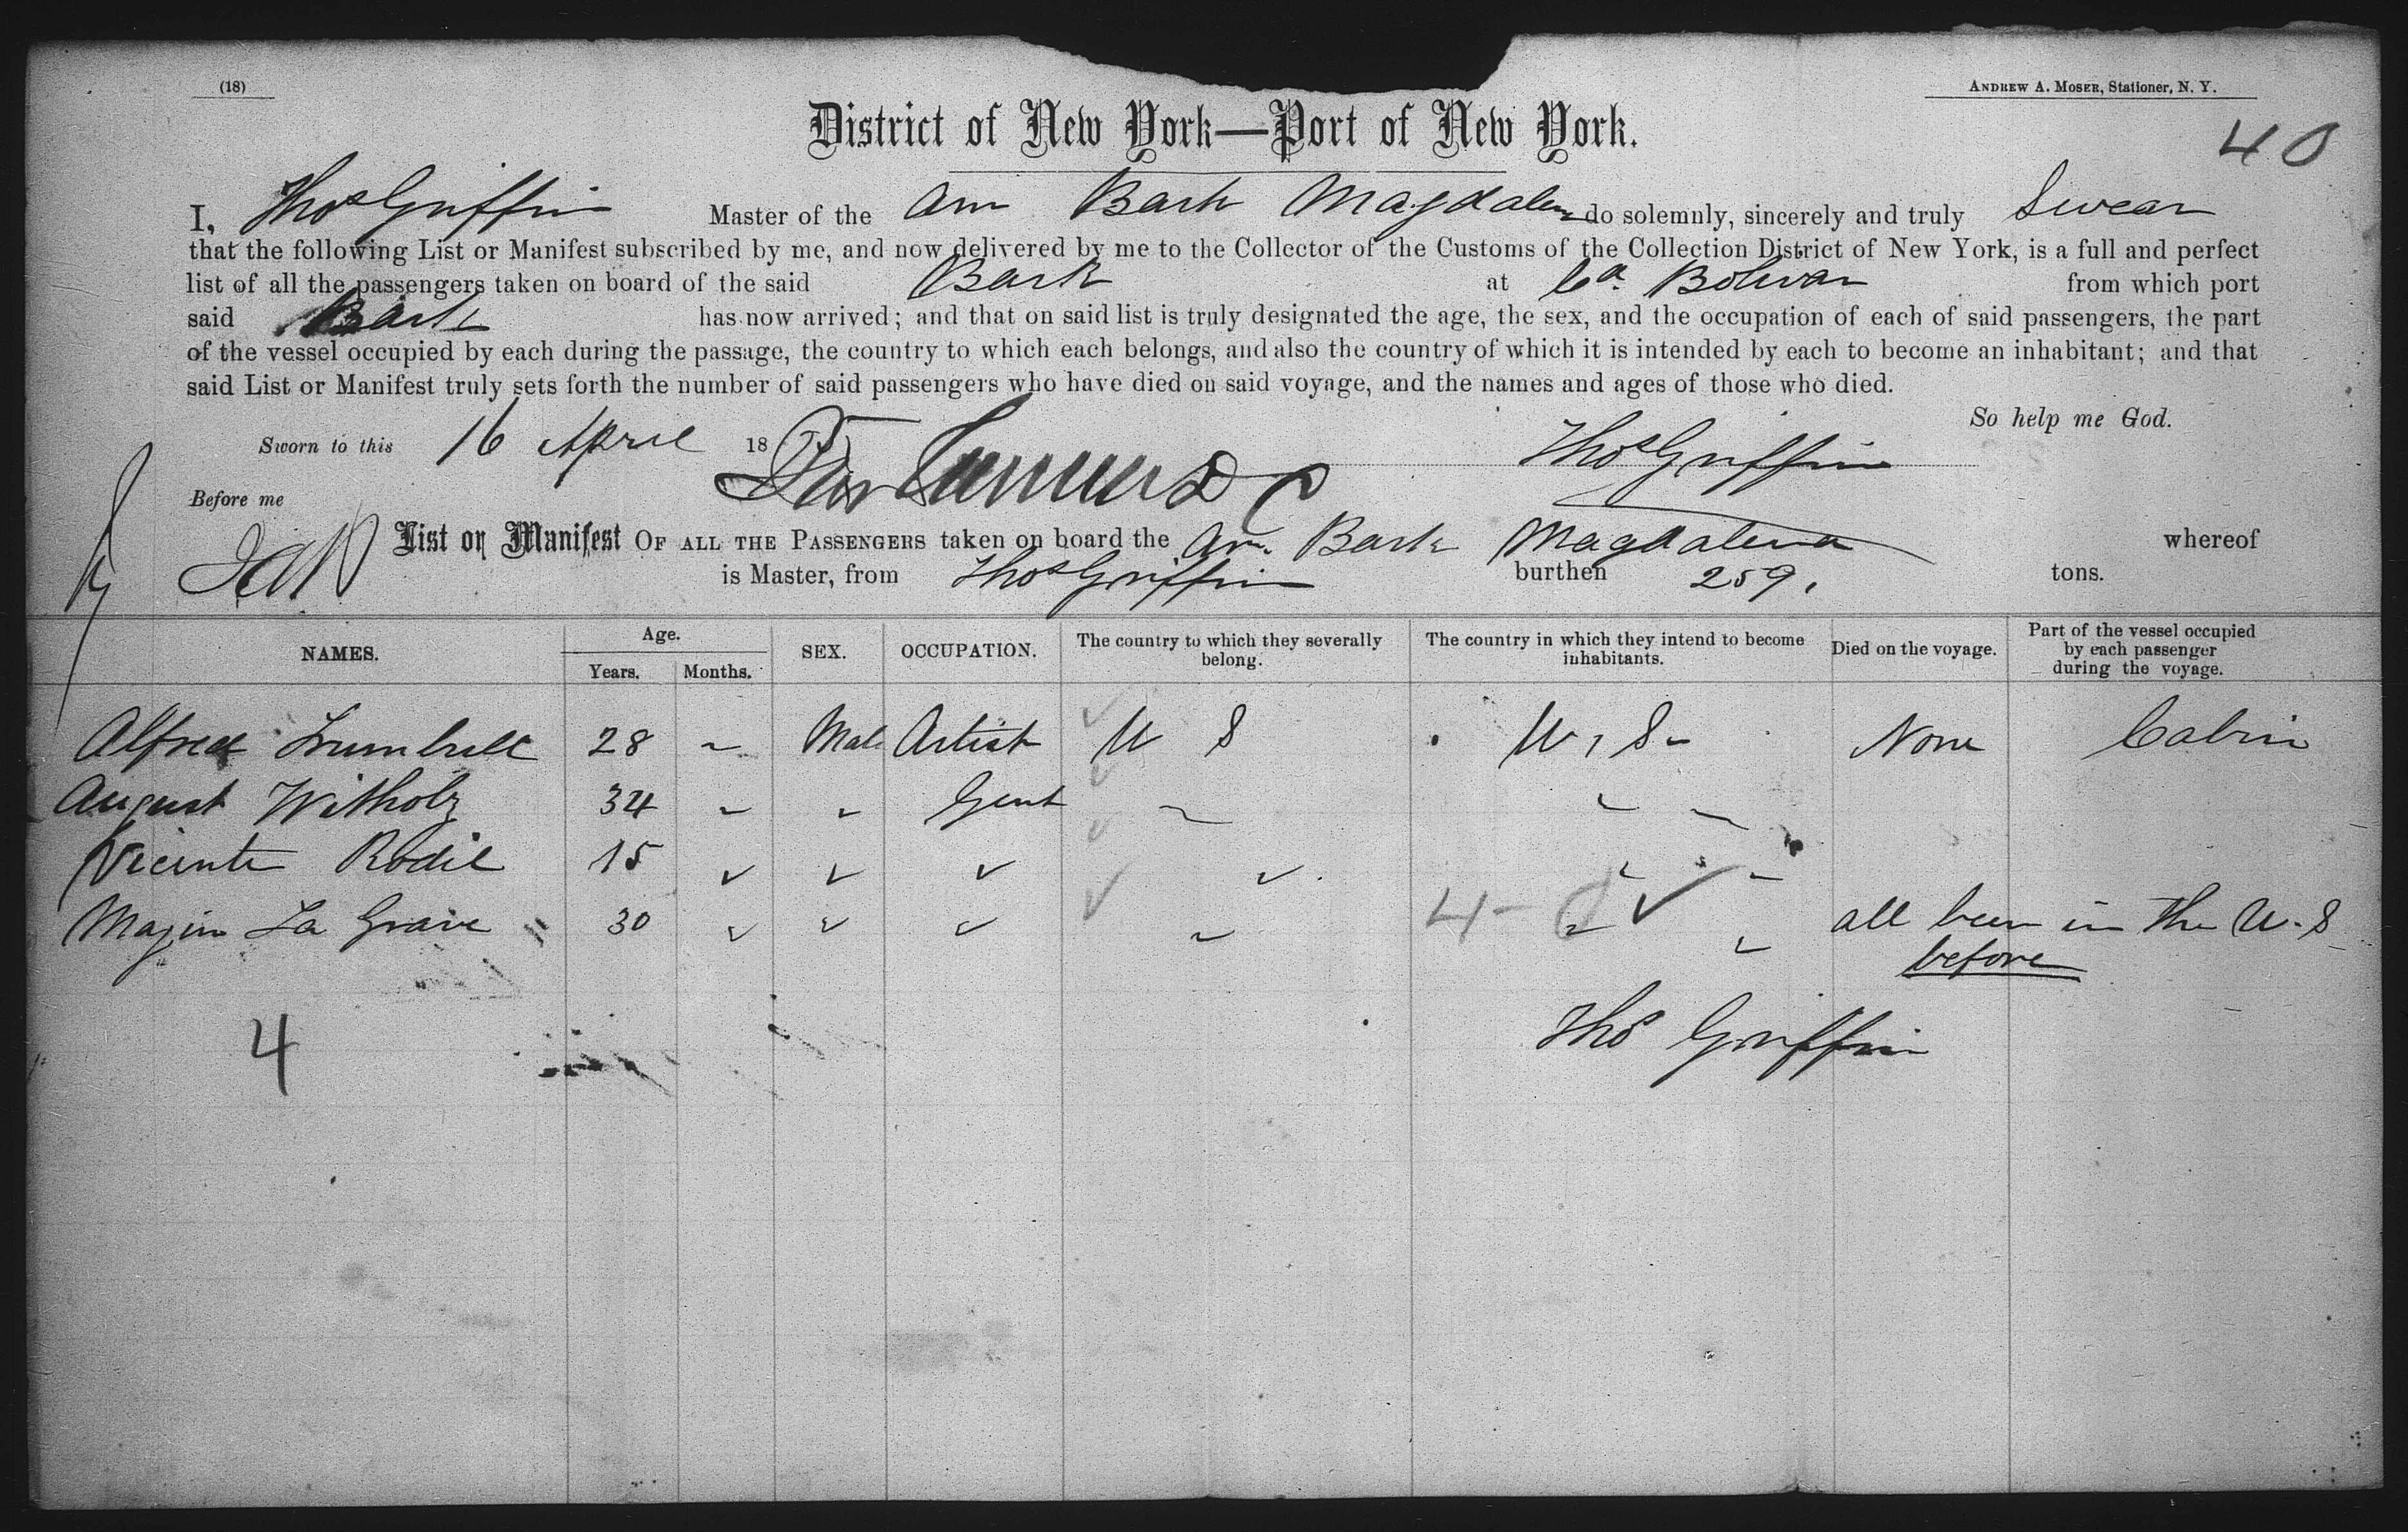 (18)
ANDREW A. MOSER, Stationer, N. Y.
District of New York—Port of New York.
40
I, Thos Griffin Master of the Am Bark Magdalena do solemnly, sincerely and truly Swear
that the following List or Manifest subscribed by me, and now delivered by me to the Collector of the Customs of the Collection District of New York, is a full and perfect
list of all the passengers taken on board of the said Bark at Ca. Bolivar from which port
said Bark has now arrived; and that on said list is truly designated the age, the sex, and the occupation of each of said passengers, the part
of the vessel occupied by each during the passage, the country to which each belongs, and also the country of which it is intended by each to become an inhabitant; and that
said List or Manifest truly sets forth the number of said passengers who have died on said voyage, and the names and ages of those who died.
So help me God.
Sworn to this 16 April 18 Thos Griffin
Before me
List or Manifest OF ALL THE PASSENGERS taken on board the Am. Bark Magdalena whereof
is Master, from Thos Griffin burthen 259. tons.
NAMES. Age. Years. Months. SEX. OCCUPATION. The country to which they severally belong. The country in which they intend to become inhabitants. Died on the voyage. Part of the vessel occupied by each passenger during the voyage.
Alfred Trumbull 28 " Male Artist U S U, S- None Cabin
August Witholz 34 " " Gent " " "
Vicente Rodil 15 " " " " " "
Majin La Grave 30 " " " " 4- 0 ✓ " " all been in the U.S
before
4
Thos Griffin